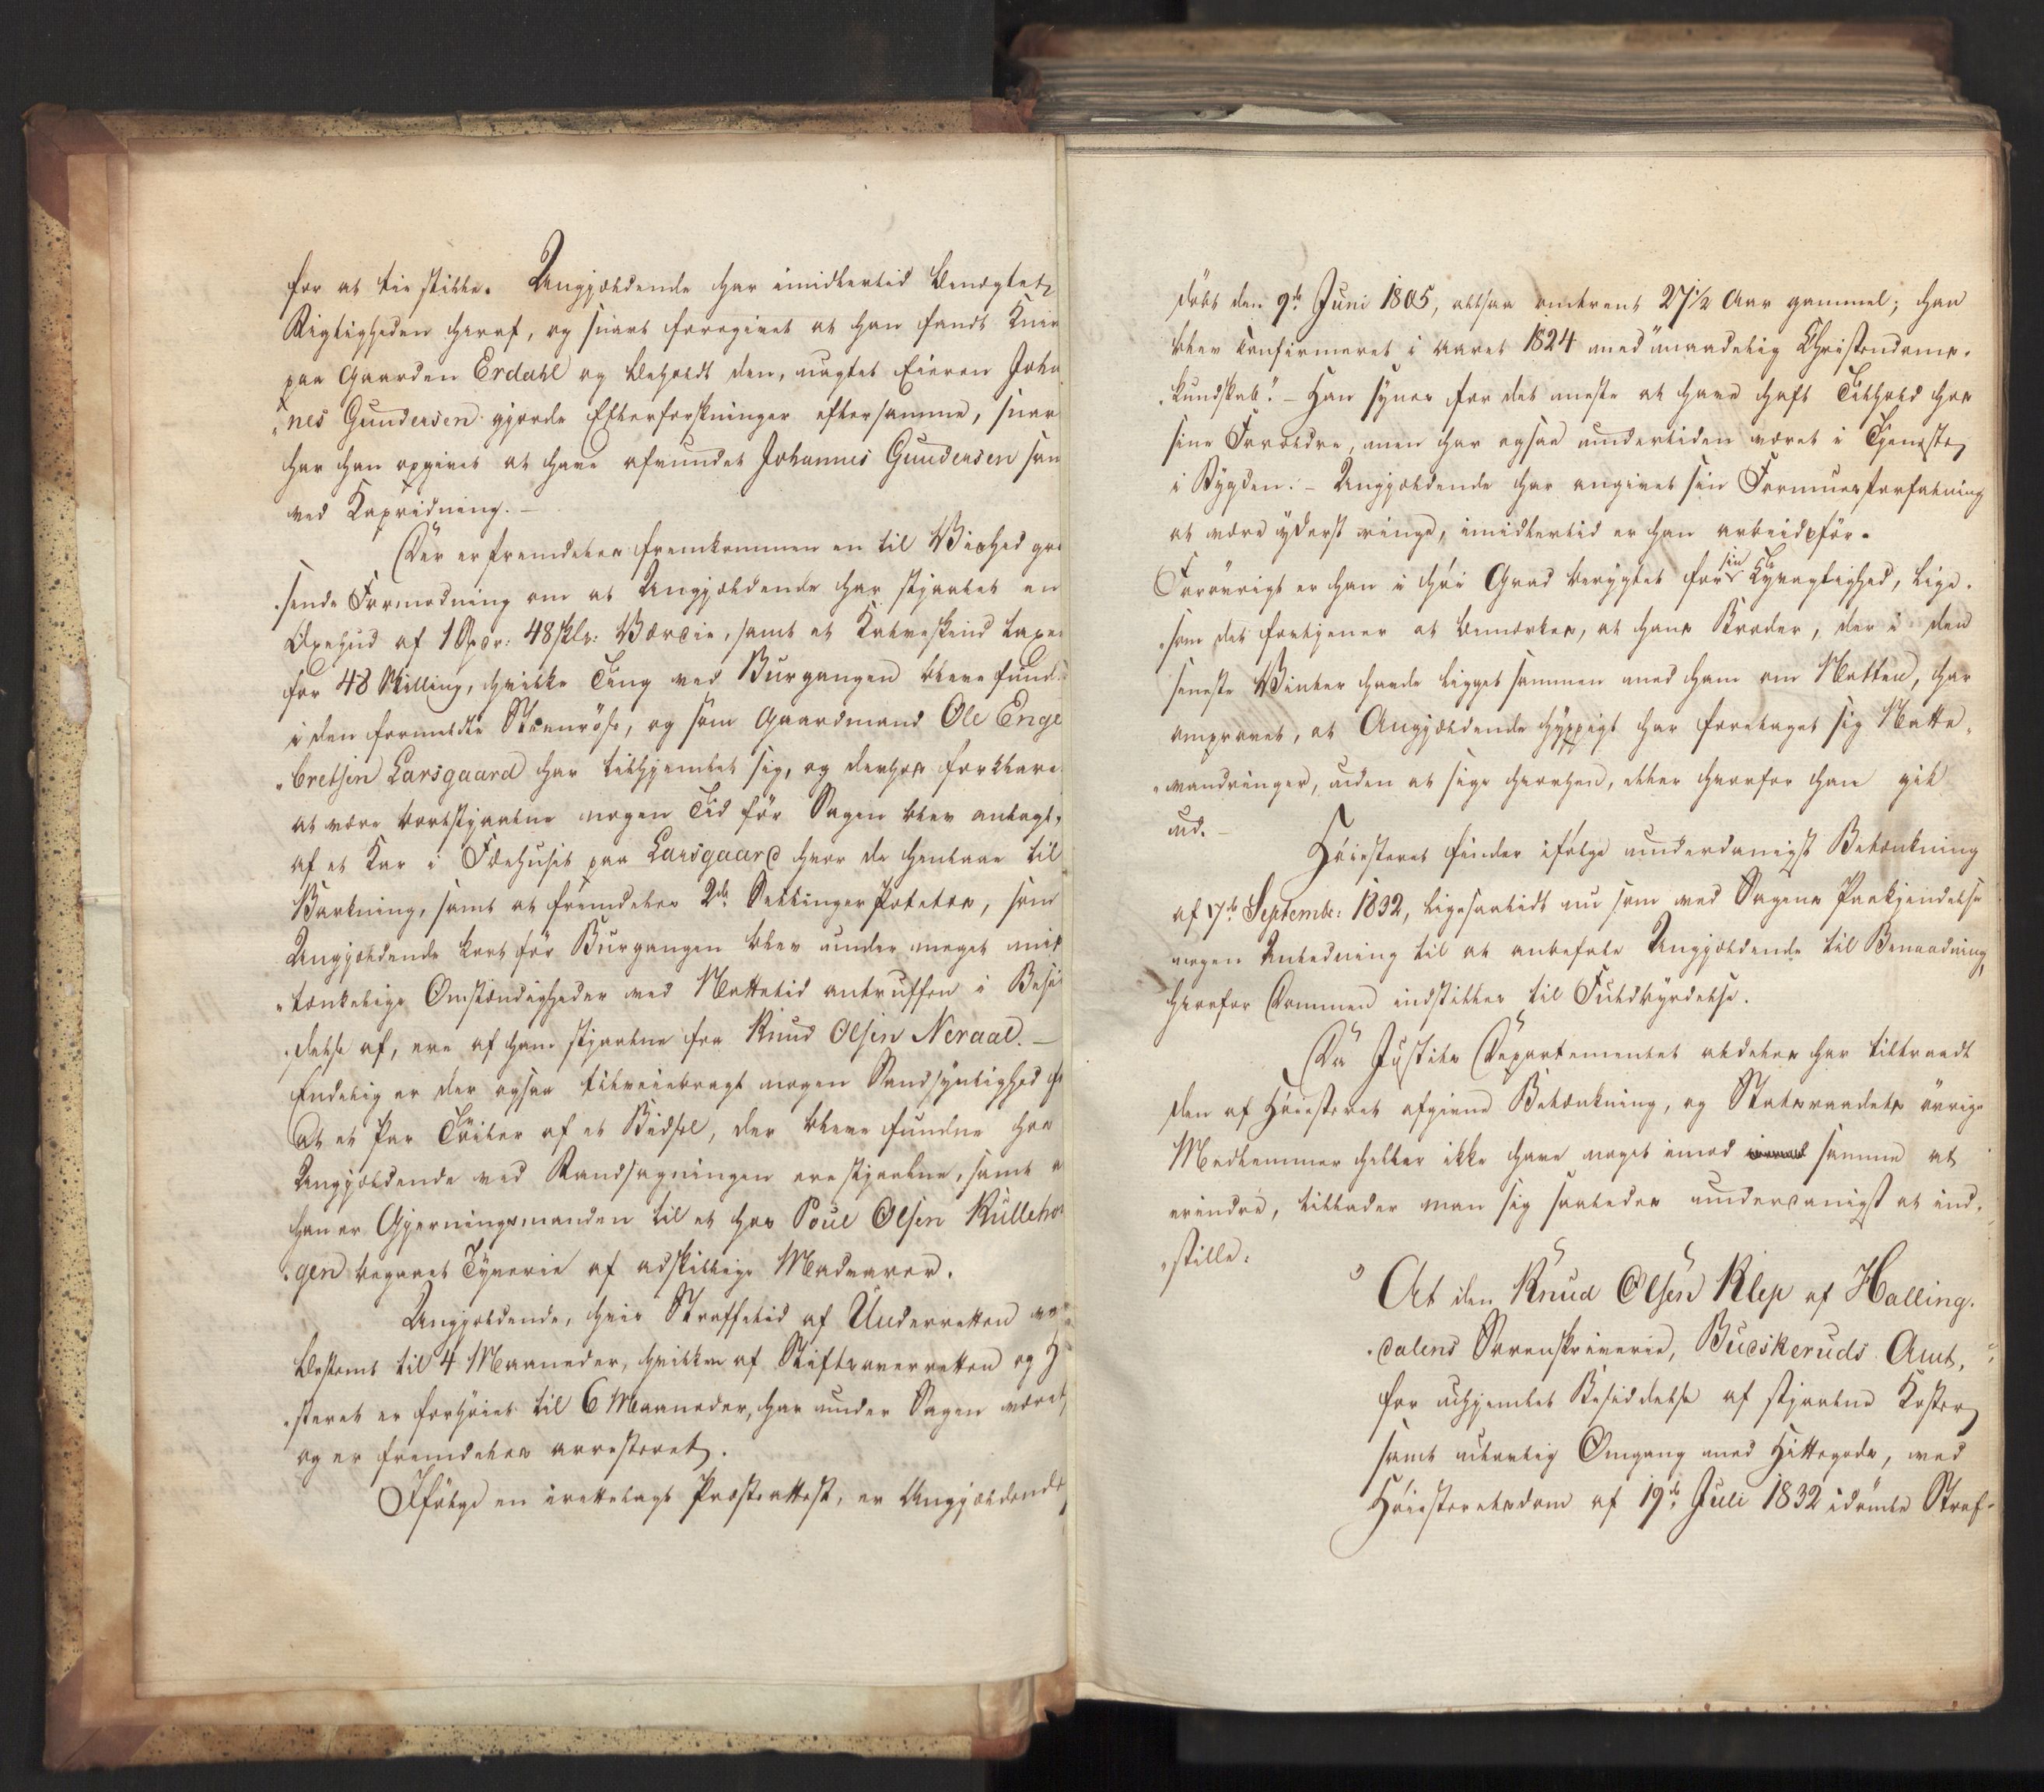 for at tie stille. Angjældende har imidlertid benægtet
Rigtigheden heraf, og snart foregivet at han fandt Kniv
paa Gaarden Erdahl og beholdt den, uagtet Eieren Joha
„nes Gundersen gjorde Efterforskninger eftersamme, snar
har han opgivet at have afvundet Johannes Gundersen sam
ved Kapridning. –
Der er fremdeles fremkommen en til Vished græ
„sende Formodning om at Angjældende har stjaalet en
Oxehud af 1 Spdr: 48 skls: Værdie, samt et Kalveskind taxer
for 48 Skilling, hvilke Ting ved Burgangen bleve fund
i den formeldte Steenröse, og som Gaardmand Ole Enge
„bretsen Larsgaard har tilhjemlet sig, og derhos forklare
at være bortstjaalne nogen Tid för Sagen blev anlagt,
af et Kar i Fæhuset paa Larsgaard hvor de henlaae til
Barkning, samt at fremdeles 2de Settinger Poteter, som
Angjældende kort för Burgangen blev under meget mis
„tænkelige Omstændigheder ved Nattetid antruffen i Besid
„delse af, ere af ham stjaalne fra Knud Olsen Neraal. –
Endelig er der ogsaa tilveiebragt nogen Sandsynlighed f
at et Par Töiler af et Bidsel, der bleve fundne hos
Angjældende ved Randsagningen ere stjaalne, samt a
han er Gjerningsmanden til et hos Poul Olsen Kulleho
„gen begaaet Tyverie af adskillige Madvarer.
Angjældende, hvis Straffetid af Underretten va
bestemt til 4 Maaneder, hvilken af Stiftsoverretten og H
„steret er forhöiet til 6 Maaneder, har under Sagen været
og er fremdeles arresteret.
Ifölge en irettelagt Præsteattest, er Angjældende
döbt den 9de Juni 1805, altsaa omtrent 27½ Aar gammel; han
blev Confirmeret i Aaret 1824 med „maadelig Christendoms-
„kundskab". – Han synes for det meste at have haft Tilhold hos
sine Forældre, men har ogsaa undertiden været i Tjeneste
i Bygden. – Angjældende har angivet sin Formuesforfatning
at være yderst ringe, imidlertid er han arbeidsför.
Forövrigt er han i höi Grad berygtet for sin Tyvagtighed, lige-
„som det fortjener at bemærkes, at hans Broder, der i den
seneste Vinter havde ligget sammen med ham om Natten, har
omprovet, at Angjældende hyppigt har foretaget sig Natte-
„vandringer, uden at sige hvorhen, eller hvorfor han gik
ud. –
Höiesteret finder ifölge underdanigst Betænkning
af 17de Septembr: 1832, ligesaalidt nu som ved Sagens Paakjendelse
nogen Anledning til at anbefale Angjældende til Benaadning,
hvorfor Dommen indstilles til Fuldbyrdelse.
Da Justits Departementet aldeles har tiltraadt
den af Höiesteret afgivne Betænkning, og Statsraadets övrige
Medlemmer heller ikke have noget imod samme at
erindre, tillader man sig saaledes underdanigst at ind-
„stille:
At den Knud Olsen Klep af Halling-
„dalens Sorenskriverie, Budskeruds Amt,
for uhjemlet Besiddelse af stjaalne Koster
samt ulovlig Omgang med Hittegods, ved
Höiesteretsdom af 19de Juli 1832 idömte Straf-